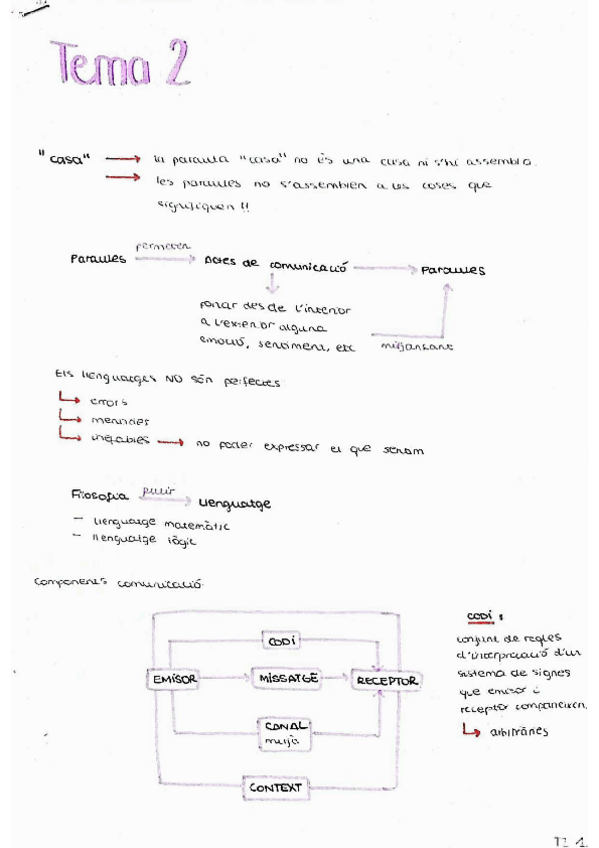 Tema 2
"casa" → la paraula "casa" no és una casa ni s'hi assembla.
→ les paraules no s'assemblen a les coses que
signifiquen !!
permeten
Paraules → Actes de comunicació → Paraules
portar des de l'interior
a l'exterior alguna
emoció, sentiment, etc mitjançant
Els llenguatges NO són perfectes
errors
mentides
inefables → no poder expressar el que sentim
Filosofia pulir → Llenguatge
- llenguatge matemàtic
- llenguatge lògic
Components comunicació
CODI :
conjunt de regles
d'interpretació d'un
sistema de signes
que emisor i
receptor comparteixen.
arbitràries
CODI
EMISOR → MISSATGE → RECEPTOR
CANAL
mitjà
CONTEXT
T2 1